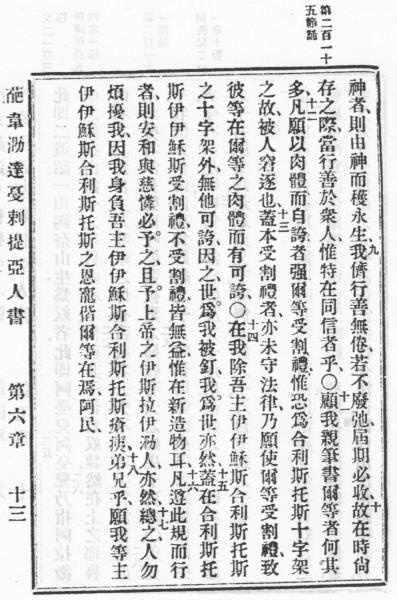 第二百一十
五節誦
神者、則由神而穫永生、九我儕行善無倦、若不廢弛、屆期必收、十故在時尙
存之際、當行善於衆人、惟特在同信者乎、〇十一顧我親筆書爾等者何其
多、十二凡願以肉體而自誇者、强爾等受割禮、惟恐爲合利斯托斯十字架
之故、被人窘逐也、十三蓋本受割禮者亦未守法律、乃願使爾等受割禮、致
彼等在爾等之肉體而有可誇、〇十四在我除吾主伊伊穌斯合利斯托斯
之十字架外、無他可誇、因之世爲我被釘、我爲世亦然、十五蓋在合利斯托
斯伊伊穌斯受割禮、不受割禮、皆無益、惟在新造物耳、十六凡遵此規而行
者、則安和與慈憐必予之、且予上帝之伊斯拉伊泐人亦然、十七總之人勿
煩擾我、因我身負吾主伊伊穌斯合利斯托斯瘡痍、十八弟兄乎、願我等主
伊伊穌斯合利斯托斯之恩寵偕爾等在焉、阿民、
葩韋泐達戛剌提亞人書 第六章 十三